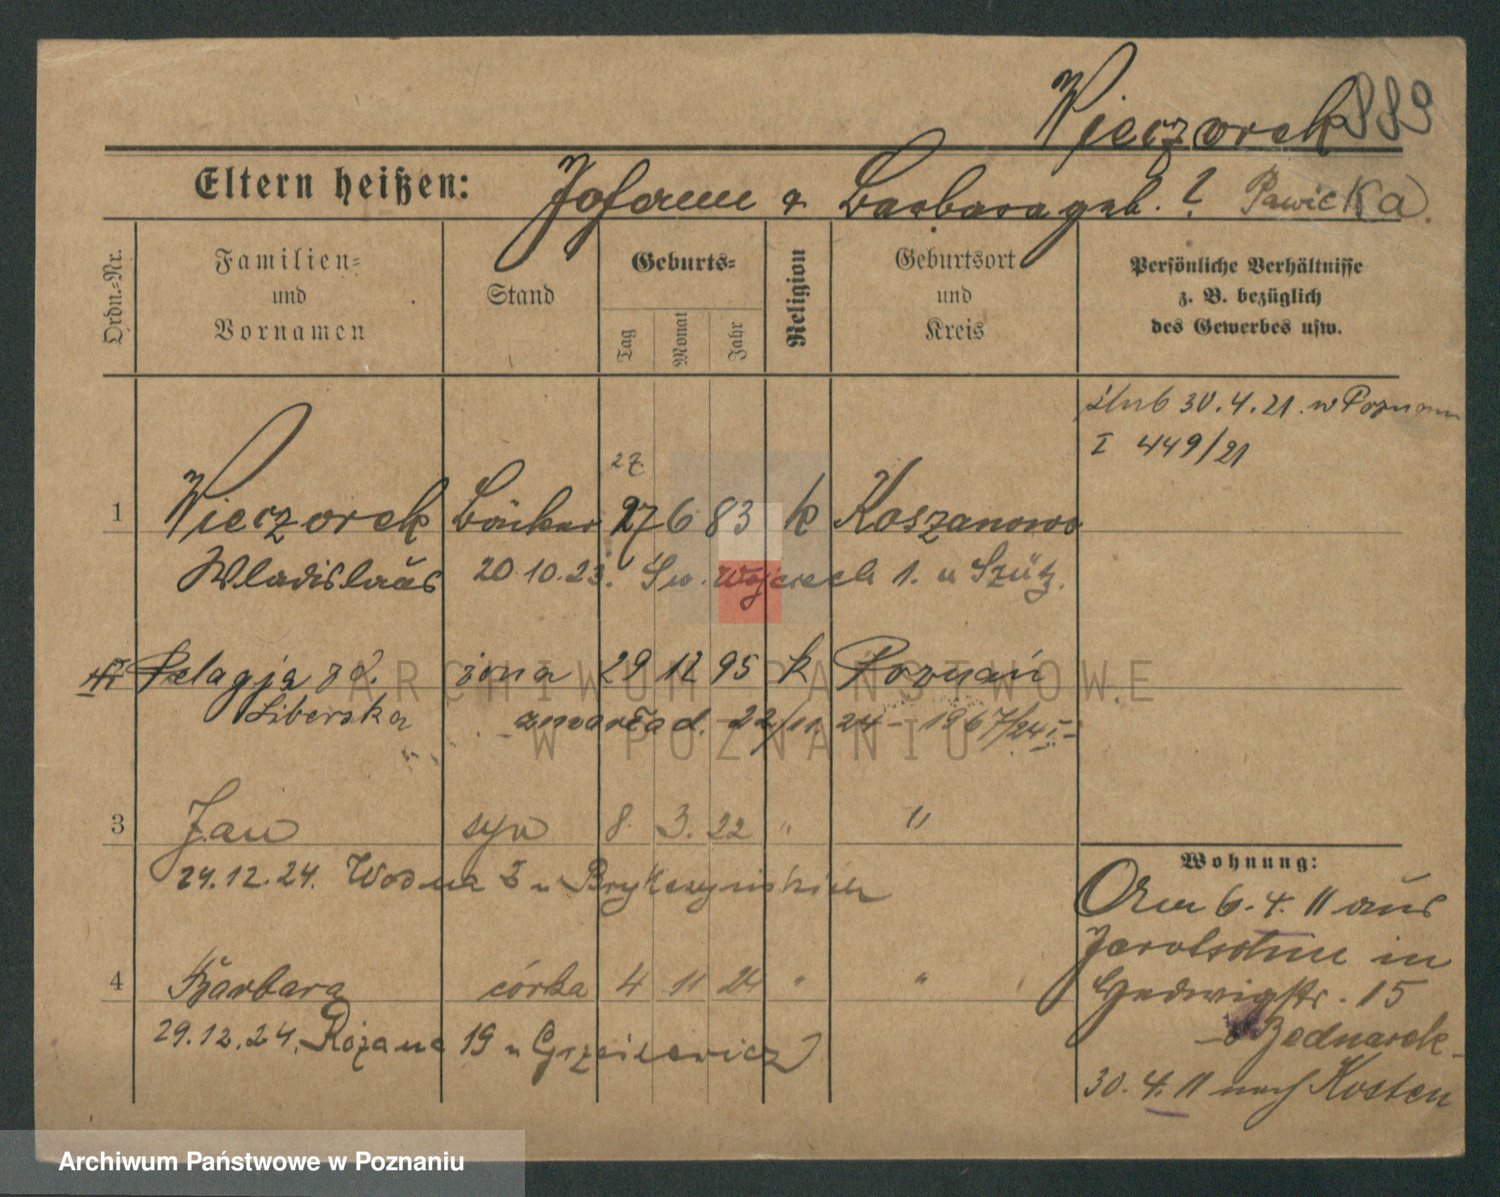 Wieczorek 889
Eltern heißen: Johann & Barbara geb. ? Pawicka.
Ordn.-Nr.
Familien-
und
Vornamen
Stand
Geburts-
Tag
Monat
Jahr
Religion
Geburtsort
und
Kreis
Persönliche Verhältnisse
z. B. bezüglich
des Gewerbes usw.
ślub 30.4.21. w Poznaniu
I 449/21
27
1 Wieczorek Böttcher 27 6 83 k Koszanowo
Wladislaus 20.10.23. Św. Wojciech 1. u Szütz.
Pelagja zd. żona 29 12 95 k Poznań
Liberska zmarła d. 22/11. 24 - 1967/24 I-
3 Jan syn 8. 3. 22 " "
24.12.24. Wodna 3 u Brykczyńskich
4 Barbara córka 4 11 24 " "
29.12.24. Różana 19 u
Wohnung:
6.4.11 aus
Jarotschin in
Hedwigstr. 15
Bednarek-
30.4.11 nach Kosten
ARCHIWUM PAŃSTWOWE
W POZNANIU
Archiwum Państwowe w Poznaniu